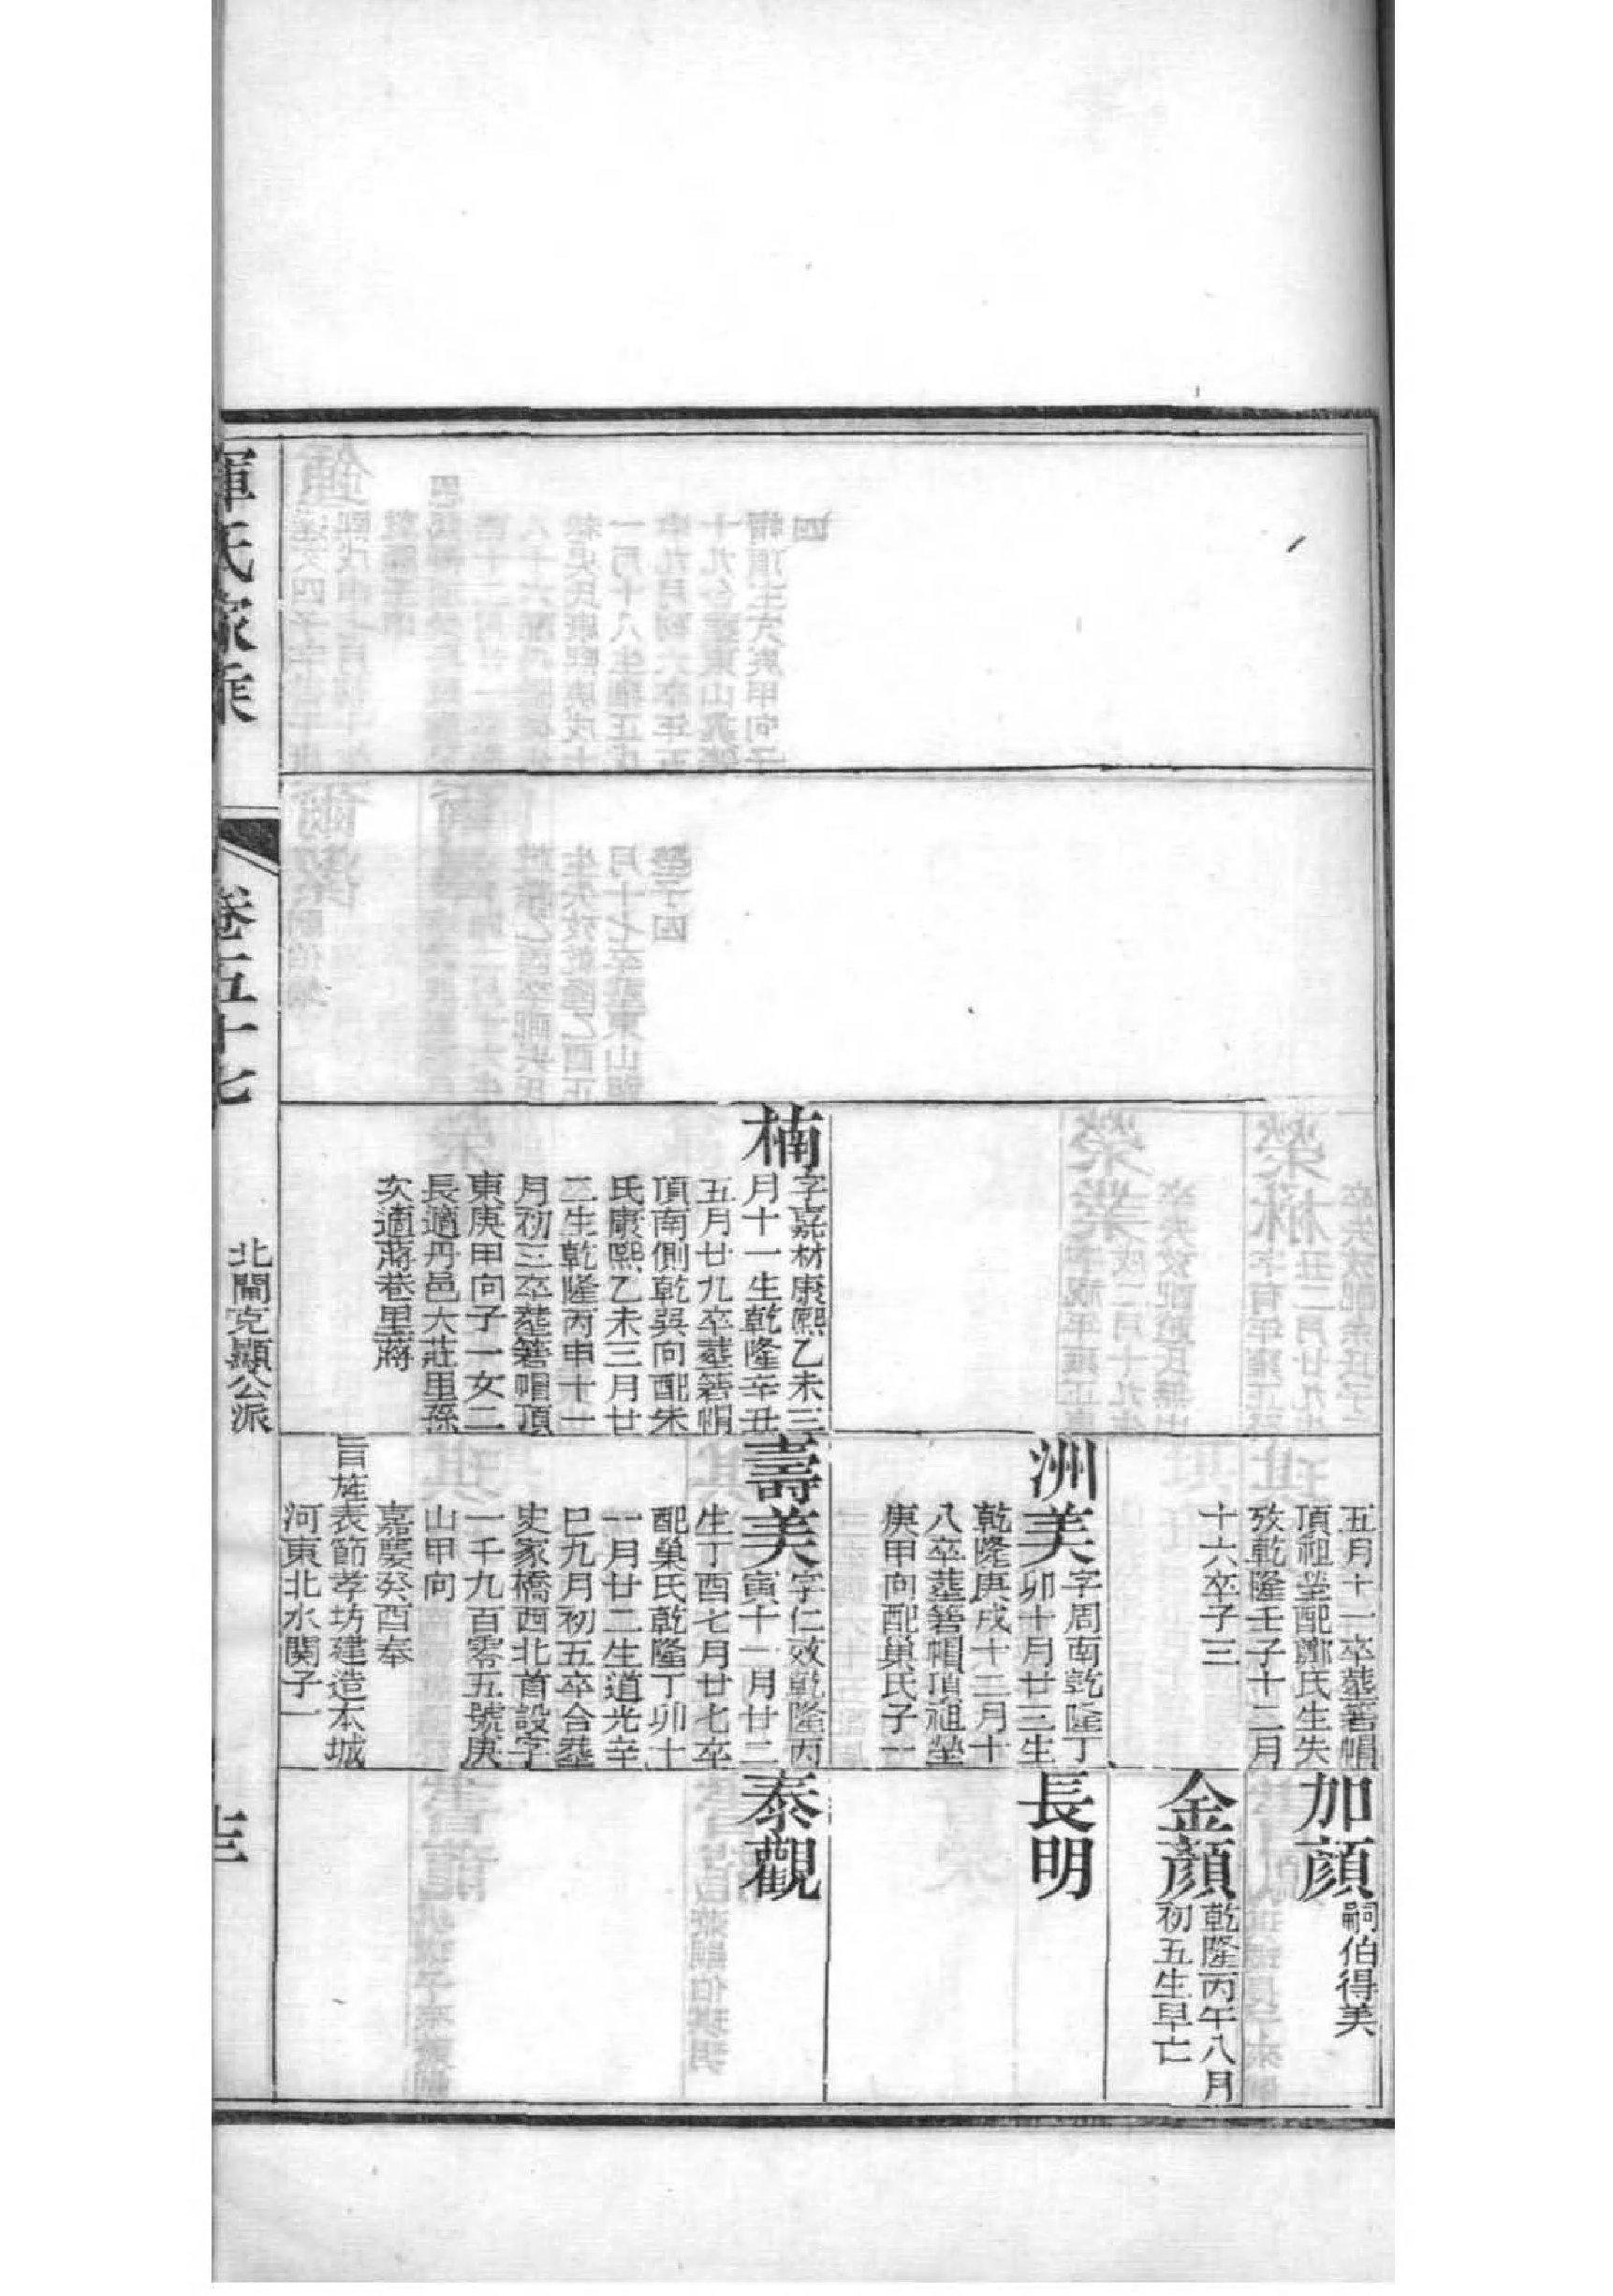 楠
字嘉材康熙乙未三
月十一生乾隆辛丑
五月廿九卒塟箬帽
頂南側乾巽向配朱
氏康熙乙未三月廿
二生乾隆丙申十一
月初三卒塟箬帽頂
東庚甲向子一女二
長適丹邑大莊里孫
次適蔣巷里蔣
五月十一卒塟箬帽
頂祖塋配鄭氏生失
攷乾隆壬子十二月
十六卒子三
洲美
字周南乾隆丁
卯十月廿三生
乾隆庚戌十二月十
八卒塟箬帽頂祖塋
庚甲向配巢氏子一
壽美
字仁效乾隆丙
寅十一月廿二
生丁酉七月廿七卒
配巢氏乾隆丁卯十
一月廿二生道光辛
巳九月初五卒合塟
史家橋西北首設字
一千九百零五號庚
山甲向
嘉慶癸酉奉
旨旌表節孝坊建造本城
河東北水關子一
加顔
嗣伯得美
金顔
乾隆丙午八月
初五生早亡
長明
泰觀
惲氏家乘
卷五十七
北閘克顯公派